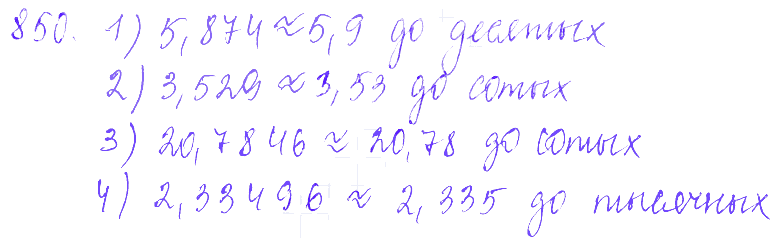 850. 1) 5,874 ≈ 5,9 до десятых
2) 3,529 ≈ 3,53 до сотых
3) 20,7846 ≈ 20,78 до сотых
4) 2,33496 ≈ 2,335 до тысячных